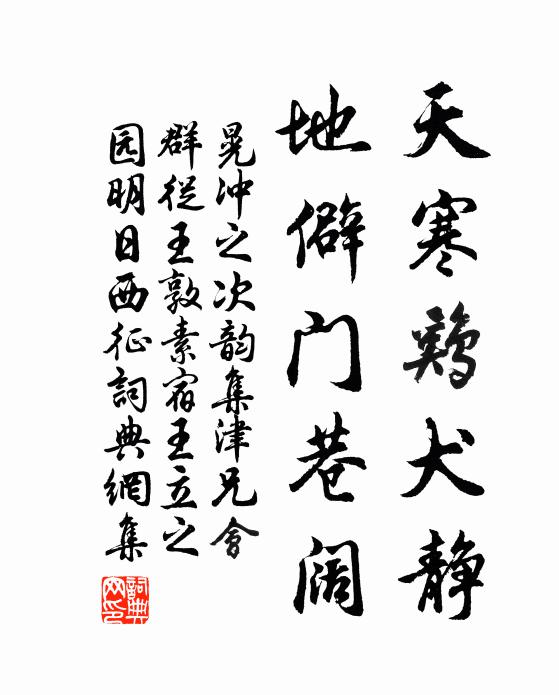 天寒鷄犬静
地僻门巷阔
晃冲之次韵集津兄會
群從王敦素宿王立之
园明日西征詞典網集
詞典
网印